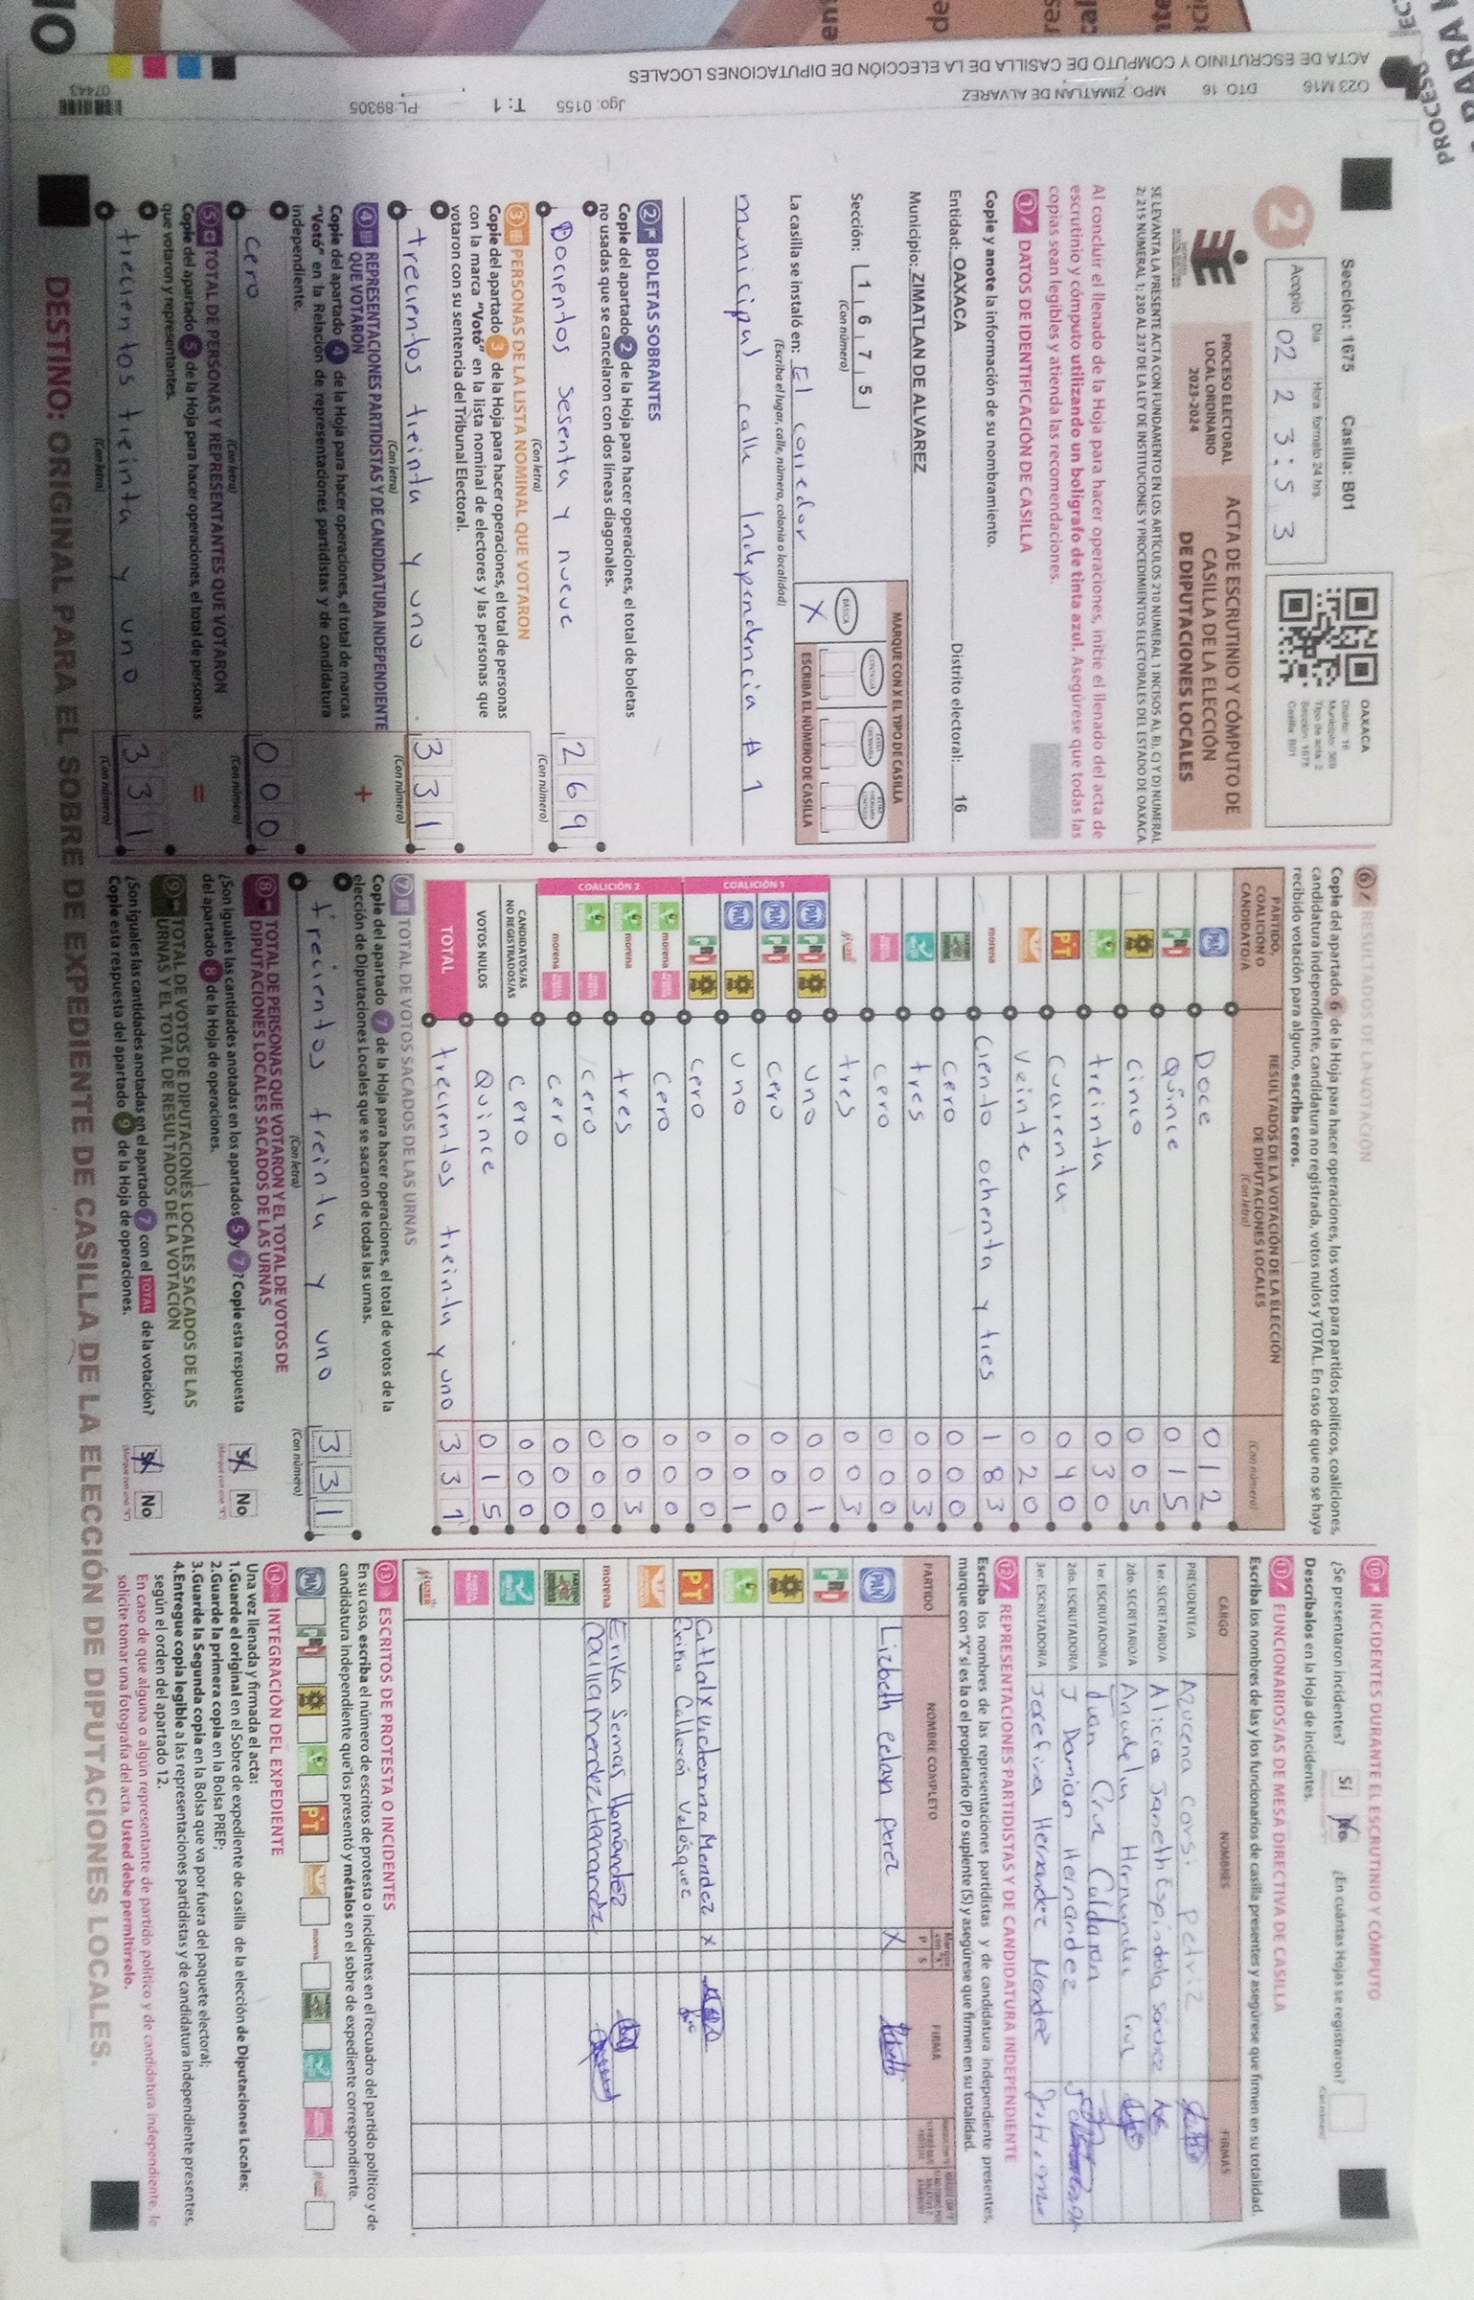 Sección: 1675 Casilla: B01
Día Hora: formato 24 hrs.
Acopio 02 23:53
OAXACA
Distrito: 16
Tipo de acta: 2
Sección: 1675
Casilla: B01
2
PROCESO ELECTORAL
LOCAL ORDINARIO
2023-2024
ACTA DE ESCRUTINIO Y CÓMPUTO DE
CASILLA DE LA ELECCIÓN
DE DIPUTACIONES LOCALES
SE LEVANTA LA PRESENTE ACTA CON FUNDAMENTO EN LOS ARTÍCULOS 210 NUMERAL 1 INCISOS A), B), C) Y D) NUMERAL
2; 215 NUMERAL 1; 230 AL 237 DE LA LEY DE INSTITUCIONES Y PROCEDIMIENTOS ELECTORALES DEL ESTADO DE OAXACA
Al concluir el llenado de la Hoja para hacer operaciones, inicie el llenado del acta de
escrutinio y cómputo utilizando un bolígrafo de tinta azul. Asegúrese que todas las
copias sean legibles y atienda las recomendaciones.
1 DATOS DE IDENTIFICACIÓN DE CASILLA
Copie y anote la información de su nombramiento.
Entidad: OAXACA Distrito electoral: 16
Municipio: ZIMATLAN DE ALVAREZ
Sección: 1 6 7 5
(Con número)
MARQUE CON X EL TIPO DE CASILLA
BÁSICA
X
ESCRIBA EL NÚMERO DE CASILLA
La casilla se instaló en: El corredor
(Escriba el lugar, calle, número, colonia o localidad)
municipal calle Independencia # 1
2 BOLETAS SOBRANTES
Copie del apartado 2 de la Hoja para hacer operaciones, el total de boletas
no usadas que se cancelaron con dos líneas diagonales.
Docientos sesenta y nueve 269
(Con letra) (Con número)
3 PERSONAS DE LA LISTA NOMINAL QUE VOTARON
Copie del apartado 3 de la Hoja para hacer operaciones, el total de personas
con la marca "Votó" en la lista nominal de electores y las personas que
votaron con su sentencia del Tribunal Electoral.
trecientos treinta y uno 331
(Con letra) (Con número)
4 REPRESENTACIONES PARTIDISTAS Y DE CANDIDATURA INDEPENDIENTE
QUE VOTARON
+
Copie del apartado 4 de la Hoja para hacer operaciones, el total de marcas
"Votó" en la Relación de representaciones partidistas y de candidatura
independiente.
cero 000
(Con letra) (Con número)
5 TOTAL DE PERSONAS Y REPRESENTANTES QUE VOTARON
=
Copie del apartado 5 de la Hoja para hacer operaciones, el total de personas
que votaron y representantes.
trecientos treinta y uno 331
(Con letra) (Con número)
6 RESULTADOS DE LA VOTACIÓN
Copie del apartado 6 de la Hoja para hacer operaciones, los votos para partidos políticos, coaliciones,
candidatura independiente, candidatura no registrada, votos nulos y TOTAL. En caso de que no se haya
recibido votación para alguno, escriba ceros.
PARTIDO,
COALICIÓN O
CANDIDATO/A
RESULTADOS DE LA VOTACIÓN DE LA ELECCIÓN
DE DIPUTACIONES LOCALES
(Con letra) (Con número)
PAN Doce 012
PRI quince 015
cinco 005
treinta 030
PT cuarenta 040
Veinte 020
morena Ciento ochenta y tres 183
cero 000
tres 003
cero 000
MUJER tres 003
COALICIÓN 1
PAN PRI uno 001
PAN PRI cero 000
PAN uno 001
PRI cero 000
COALICIÓN 2
morena cero 000
morena tres 003
cero 000
morena cero 000
CANDIDATOS/AS
NO REGISTRADOS/AS cero 000
VOTOS NULOS Quince 015
TOTAL trecientos treinta y uno 331
7 TOTAL DE VOTOS SACADOS DE LAS URNAS
Copie del apartado 7 de la Hoja para hacer operaciones, el total de votos de la
elección de Diputaciones Locales que se sacaron de todas las urnas.
trecientos treinta y uno 331
(Con letra) (Con número)
8 TOTAL DE PERSONAS QUE VOTARON Y EL TOTAL DE VOTOS DE
DIPUTACIONES LOCALES SACADOS DE LAS URNAS
¿Son iguales las cantidades anotadas en los apartados 5 y 7? Copie esta respuesta
del apartado 8 de la Hoja de operaciones.
Sí No
9 TOTAL DE VOTOS DE DIPUTACIONES LOCALES SACADOS DE LAS
URNAS Y EL TOTAL DE RESULTADOS DE LA VOTACIÓN
¿Son iguales las cantidades anotadas en el apartado 7 con el TOTAL de la votación?
Copie esta respuesta del apartado 9 de la Hoja de operaciones.
Sí No
10 INCIDENTES DURANTE EL ESCRUTINIO Y CÓMPUTO
¿Se presentaron incidentes? Sí No ¿En cuántas Hojas se registraron?
Descríbalos en la Hoja de incidentes.
11 FUNCIONARIOS/AS DE MESA DIRECTIVA DE CASILLA
Escriba los nombres de las y los funcionarios de casilla presentes y asegúrese que firmen en su totalidad.
CARGO NOMBRES FIRMAS
PRESIDENTE/A Azucena Corsi Petriz
1er. SECRETARIO/A Alicia Janeth Espindola Sanchez
2do. SECRETARIO/A Anadelia Hernandez Cruz
1er. ESCRUTADOR/A Juan Cruz Calderon
2do. ESCRUTADOR/A J Damian Hernandez
3er. ESCRUTADOR/A Josefina Hernandez Mendez
12 REPRESENTACIONES PARTIDISTAS Y DE CANDIDATURA INDEPENDIENTE
Escriba los nombres de las representaciones partidistas y de candidatura independiente presentes,
marque con "X" si es la o el propietario (P) o suplente (S) y asegúrese que firmen en su totalidad.
PARTIDO NOMBRE COMPLETO P S FIRMA
PAN Lizbeth celan perez X
PRI
PT Citlaly Victorina Mendez X
Erika Calderón Velásquez
morena Erika Semas Hernández
Mendez Hernandez
MUJER
13 ESCRITOS DE PROTESTA O INCIDENTES
En su caso, escriba el número de escritos de protesta o incidentes en el recuadro del partido político y de
candidatura independiente que los presentó y métalos en el sobre de expediente correspondiente.
PAN PRI PT morena
14 INTEGRACIÓN DEL EXPEDIENTE
Una vez llenada y firmada el acta:
1.Guarde el original en el Sobre de expediente de casilla de la elección de Diputaciones Locales;
2.Guarde la primera copia en la Bolsa PREP;
3.Guarde la Segunda copia en la Bolsa que va por fuera del paquete electoral;
4.Entregue copia legible a las representaciones partidistas y de candidatura independiente presentes,
según el orden del apartado 12.
En caso de que alguna o algún representante de partido político y de candidatura independiente, le
solicite tomar una fotografía del acta. Usted debe permitírselo.
DESTINO: ORIGINAL PARA EL SOBRE DE EXPEDIENTE DE CASILLA DE LA ELECCIÓN DE DIPUTACIONES LOCALES.
O23 M16 DTO. 16 MPO. ZIMATLAN DE ALVAREZ
ACTA DE ESCRUTINIO Y COMPUTO DE CASILLA DE LA ELECCIÓN DE DIPUTACIONES LOCALES
Jgo: 0155 T: 1 PL:89305
07443
PROCESO
PARA